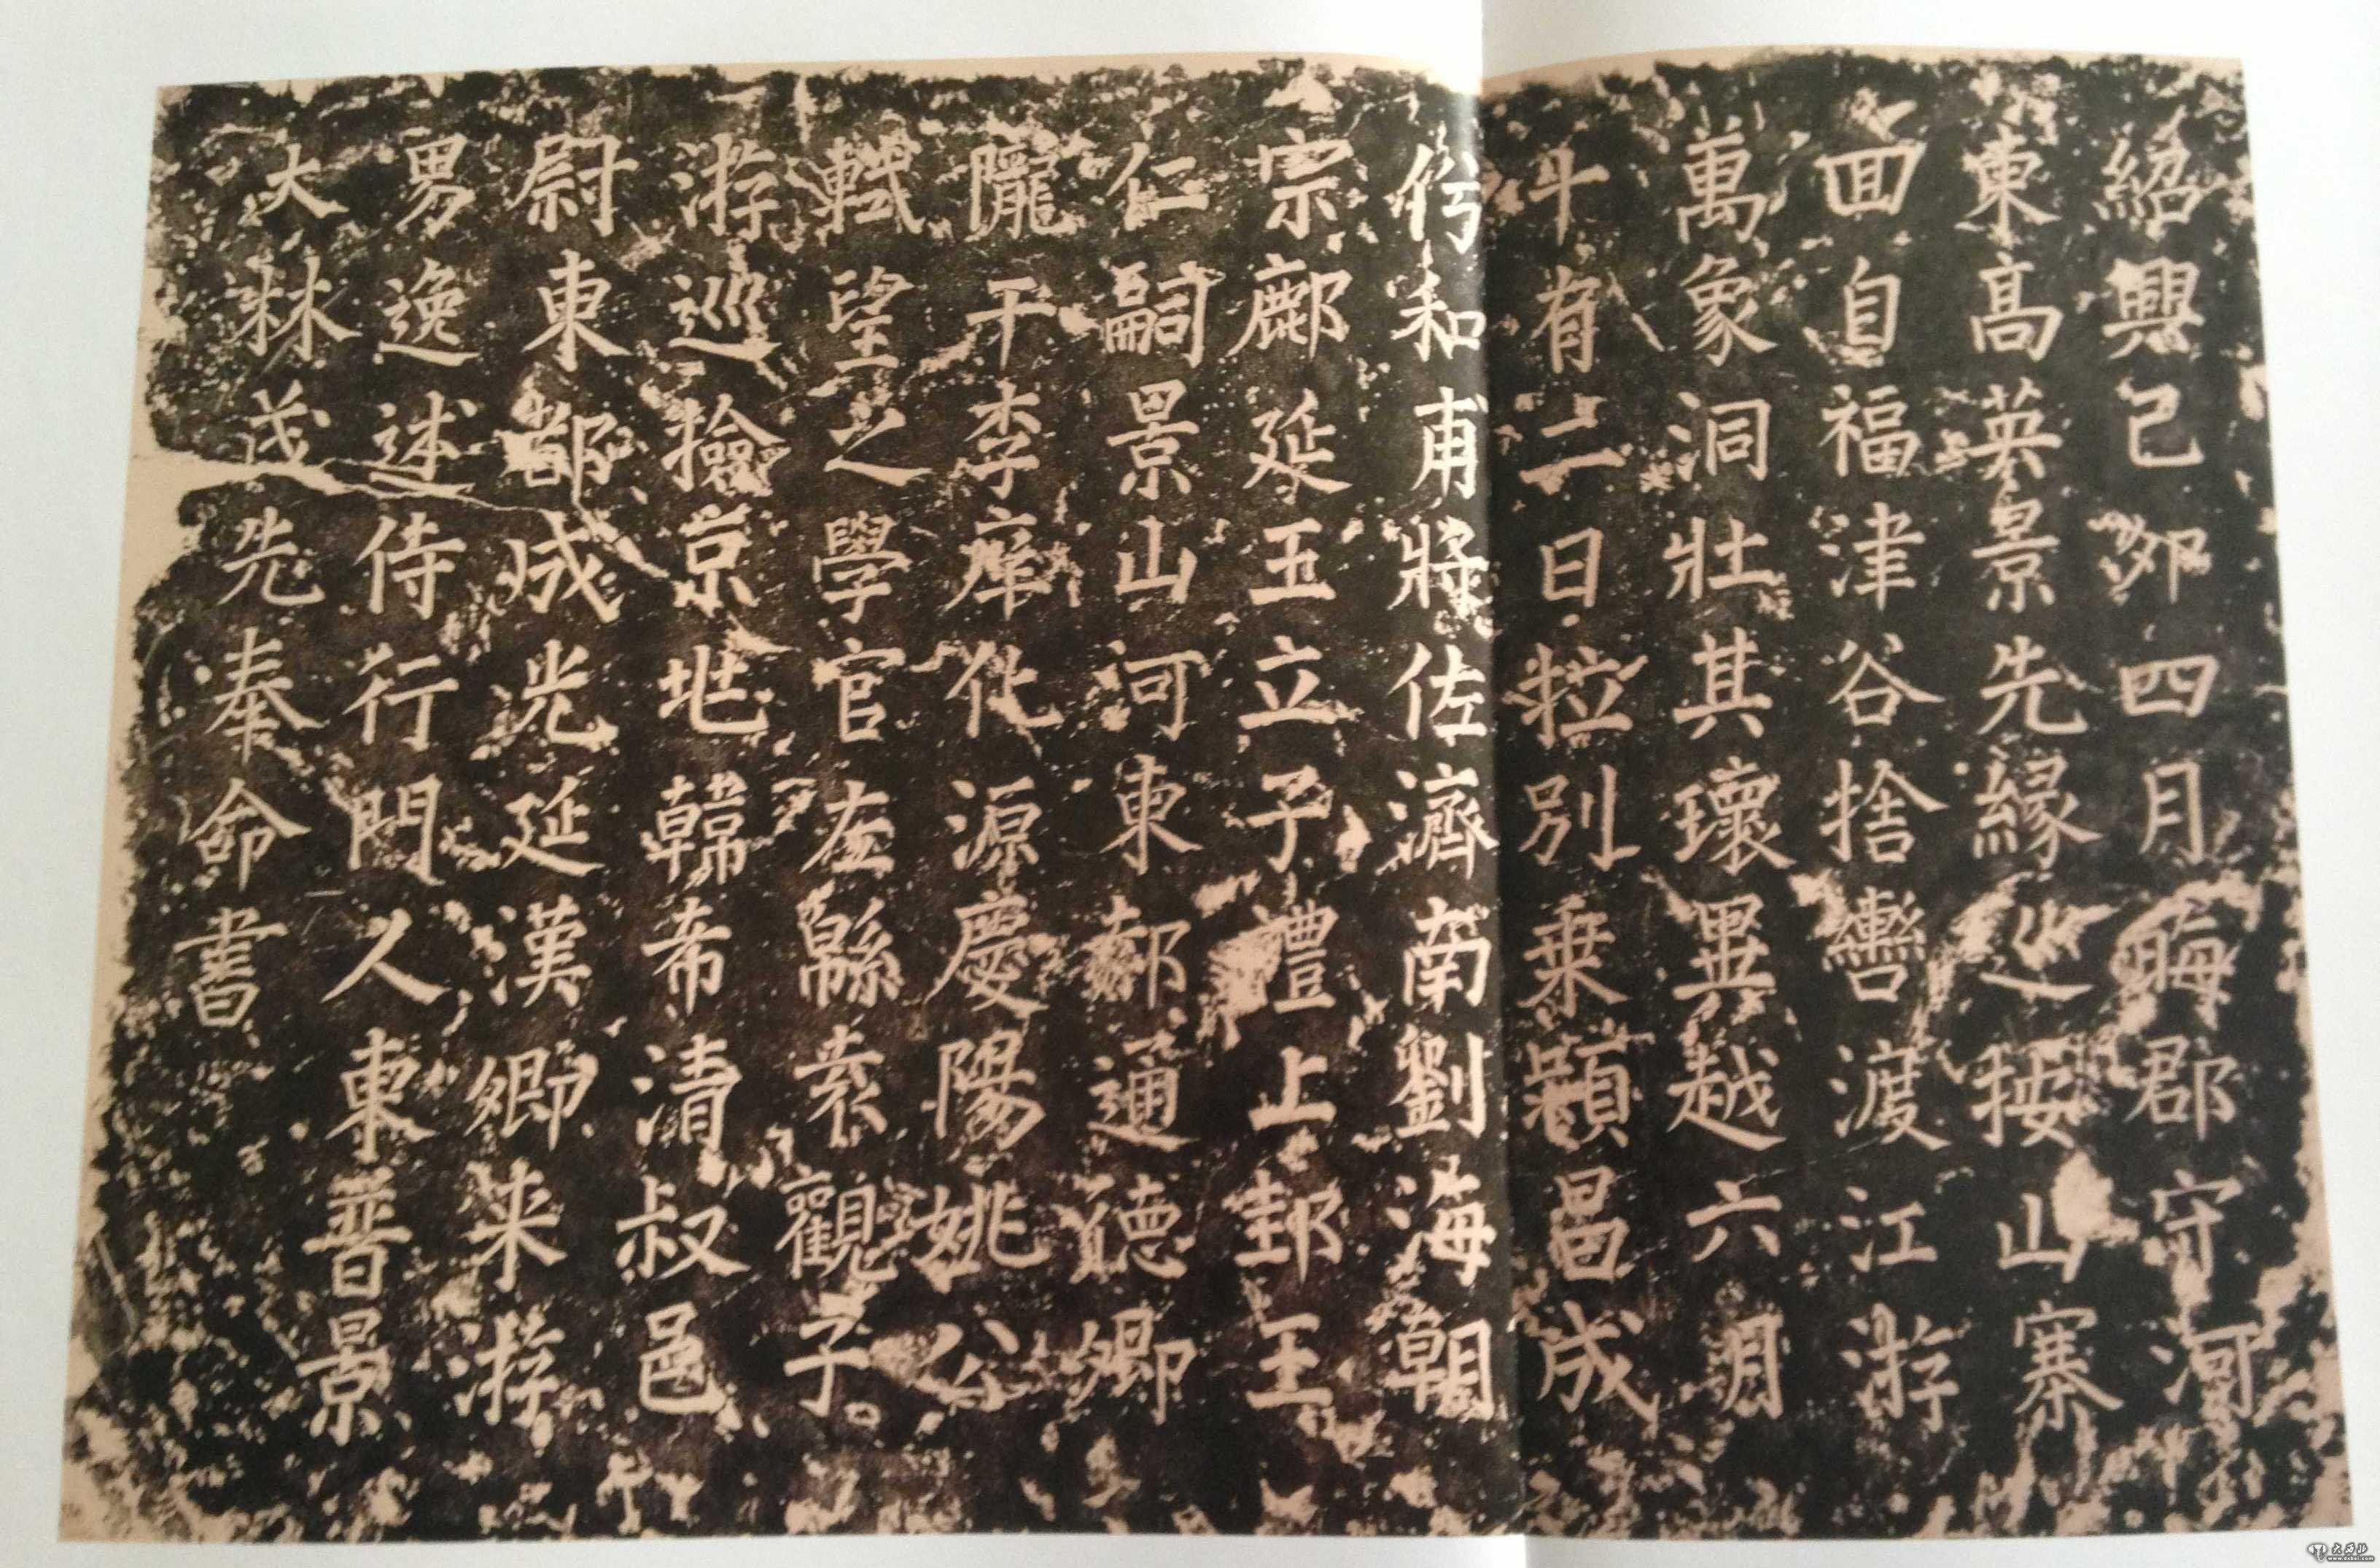 紹興己卯四月晦郡守河
東髙英景先緣巡按山寨
回自福津谷捨轡渡江游
萬象洞壯其瓌異越六月
斗有二日拉别乗潁昌成
和甫將佐濟南劉海朝
宗鄜延王立子禮上邽王
仁嗣景山河東郝通德卿
隴干李庠化源慶陽姚公
軾望之學官左緜袁觀子
游巡撿京地韓希清叔邑
尉東都成光延漢卿来游
男逸述侍行門人東普景
大林茂先奉命書